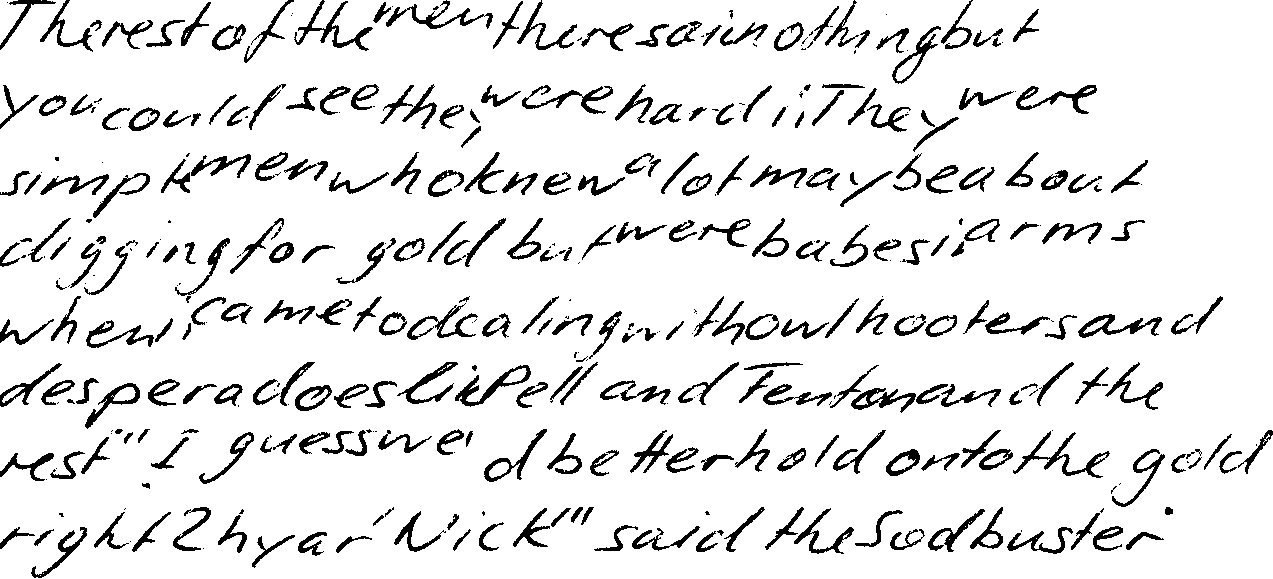 The rest of the men there said nothing but
you could see they were hard it. They were
simple men who knew a lot maybe about
digging for gold but were babes in arms
when it came to dealing with owlhooters and
desperadoes like Pell and Fenton and the
rest. "I guess we'd better hold onto the gold
right 2hyar' Nick'" said the Sodbuster.